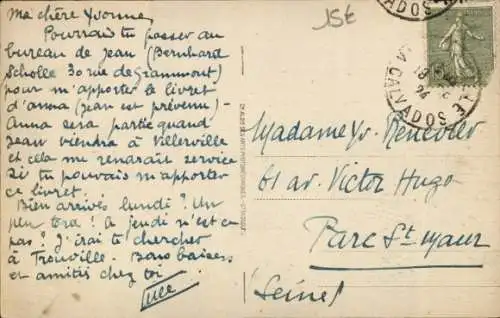 Ma chère Yvonne,
Pourrais tu passer au
bureau de Jean (Bernhard
Scholle 30 rue de Grammont)
pour m'apporter le livret
d'Anna (Jean est prévenu) -
Anna sera partie quand
Jean viendra à Villerville
et cela me rendrait service
si tu pouvais m'apporter
ce livret.
Bien arrivés lundi? Un
peu tard! A jeudi n'est ce
pas? J'irai te chercher
à Trouville. Bons baisers
et amitiés chez toi
15E
CALVADOS
24
CALVADOS
Madame Yv.
61 av. Victor Hugo
Parc St Maur
(Seine)